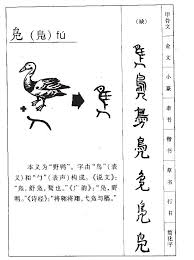 凫 (鳧) fú
本义为"野鸭"。字由"鸟"(表
义)和"勹"(表声)构成。《说文》:
"凫,舒凫,鹜也。"《广韵》:"凫,野
鸭。"《诗经》:"将翱将翔,弋凫与雁。"
(缺)
甲骨文
金文
小篆
隶书
楷书
草书
行书
简化字